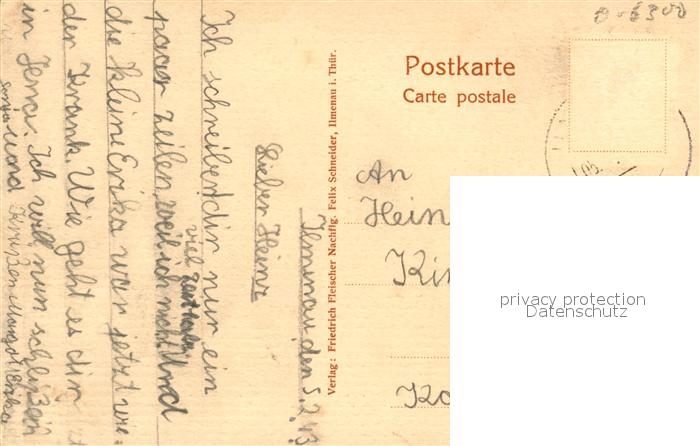 Ilmenau, den 5. 2. 43.
Lieber Heinz
Ich schreibe dir nur ein
paar zeilen, weil ich nicht
viel Zeit habe. Und
die kleine Erika war jetzt wie
der krank. Wie geht es dir
in Jena. Ich will nun schließen
und
Erika
Verlag: Friedrich Fleischer Nachflg. Felix Schneider, Ilmenau i. Thür.
Postkarte
Carte postale
An
Hein
Ki
Ko
privacy protection
Datenschutz